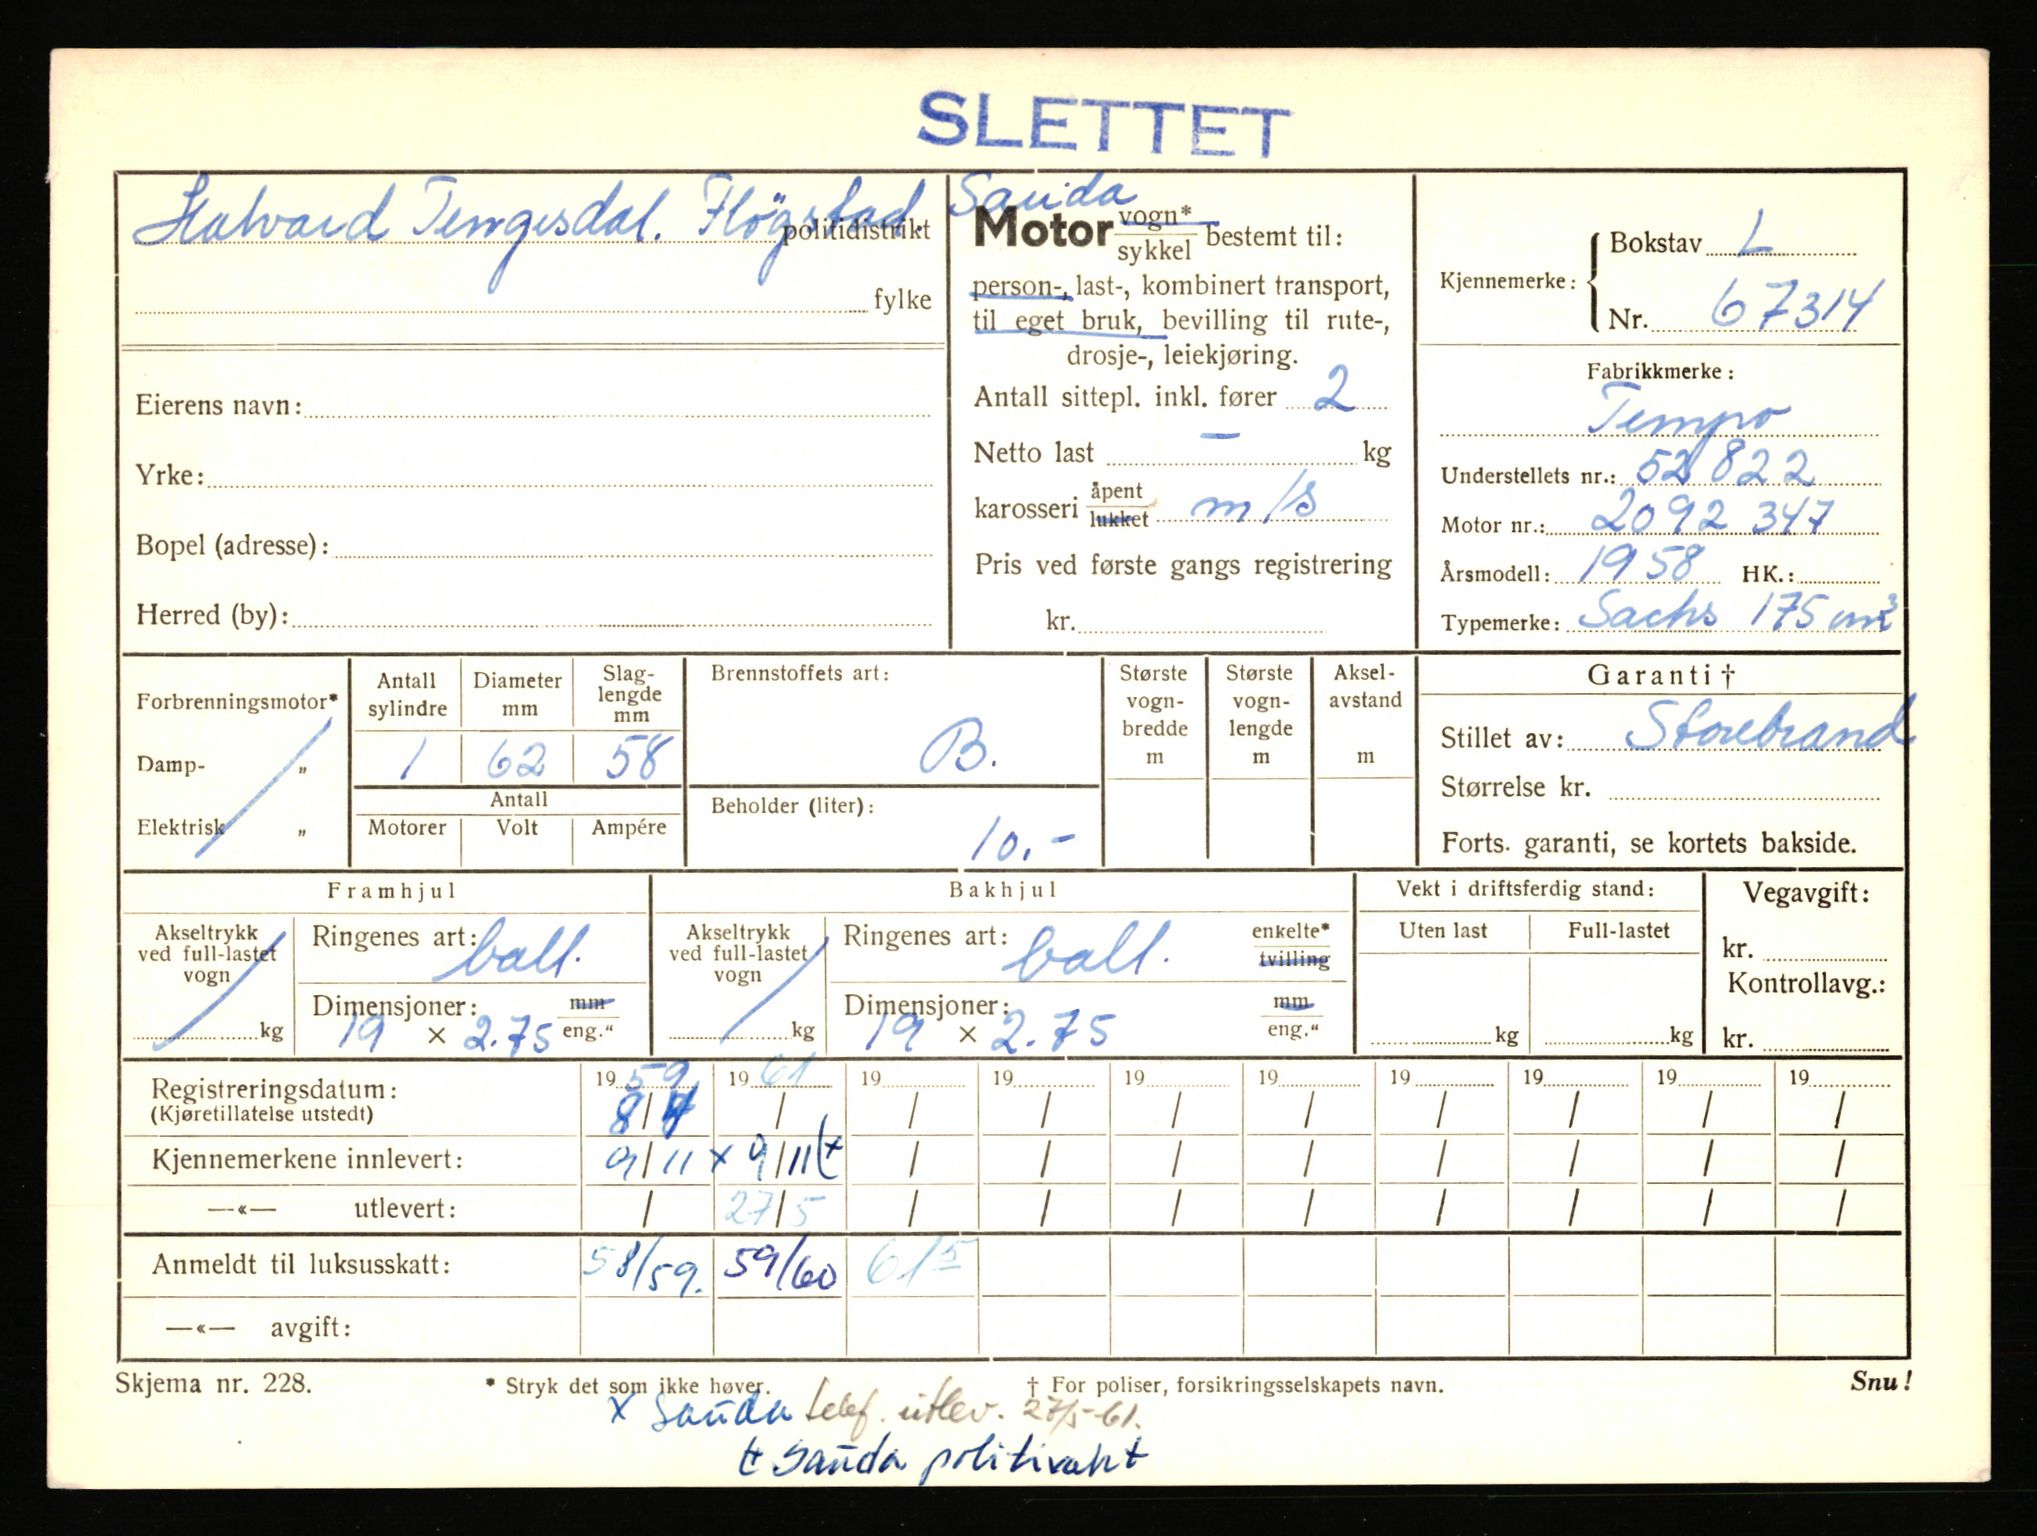 SLETTET
Halvard Tengesdal. Fløgstad. Sauda
politidistrikt
fylke
Eierens navn:
Yrke:
Bopel (adresse):
Herred (by):
Motor vogn* / sykkel bestemt til:
person-, last-, kombinert transport,
til eget bruk, bevilling til rute-,
drosje-, leiekjøring.
Antall sittepl. inkl. fører 2
Netto last — kg
karosseri åpent / lukket m/s
Pris ved første gangs registrering
kr.
Kjennemerke: Bokstav L
Nr. 67314
Fabrikkmerke:
Tempo
Understellets nr.: 52822
Motor nr.: 2092 347
Årsmodell: 1958 HK.:
Typemerke: Sachs 175 cm3
Forbrenningsmotor*
Damp- „
Elektrisk „
Antall sylindre 1
Diameter mm 62
Slaglengde mm 58
Antall
Motorer Volt Ampére
Brennstoffets art:
B.
Beholder (liter):
10.-
Største vogn-bredde m
Største vogn-lengde m
Aksel-avstand m
Garanti †
Stillet av: Storebrand
Størrelse kr.
Forts. garanti, se kortets bakside.
Framhjul
Akseltrykk ved full-lastet vogn kg
Ringenes art: ball.
Dimensjoner: mm
19 × 2.75 eng."
Bakhjul
Akseltrykk ved full-lastet vogn kg
Ringenes art: ball. enkelte* tvilling
Dimensjoner: mm
19 × 2.75 eng."
Vekt i driftsferdig stand:
Uten last Full-lastet
kg kg
Vegavgift:
kr.
Kontrollavg.:
kr.
Registreringsdatum: 1959 1961 19 19 19 19 19 19 19 19
(Kjøretillatelse utstedt) 8/ / / / / / / / / /
Kjennemerkene innlevert: 9/11 x 9/11 / / / / / / / /
—«— utlevert: / 27/5 / / / / / / / /
Anmeldt til luksusskatt: 58/59. 59/60 61/5
—«— avgift:
Skjema nr. 228. * Stryk det som ikke høver. † For poliser, forsikringsselskapets navn. Snu!
x Sauda telef. utlev. 27/5-61.
Sauda politivakt